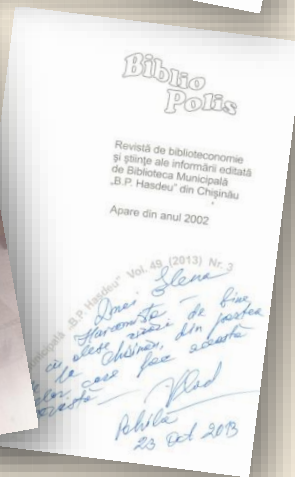 Biblio
Polis
Revistă de biblioteconomie
și științe ale informării editată
de Biblioteca Municipală
„B.P. Hasdeu” din Chișinău
Apare din anul 2002
„B.P. Hasdeu” Vol. 49 (2013) Nr. 3
Dnei Elena
de bine
cu alese
de la Chișinău, din partea
care fac această
Vlad
Pohilă
23 Oct 2013